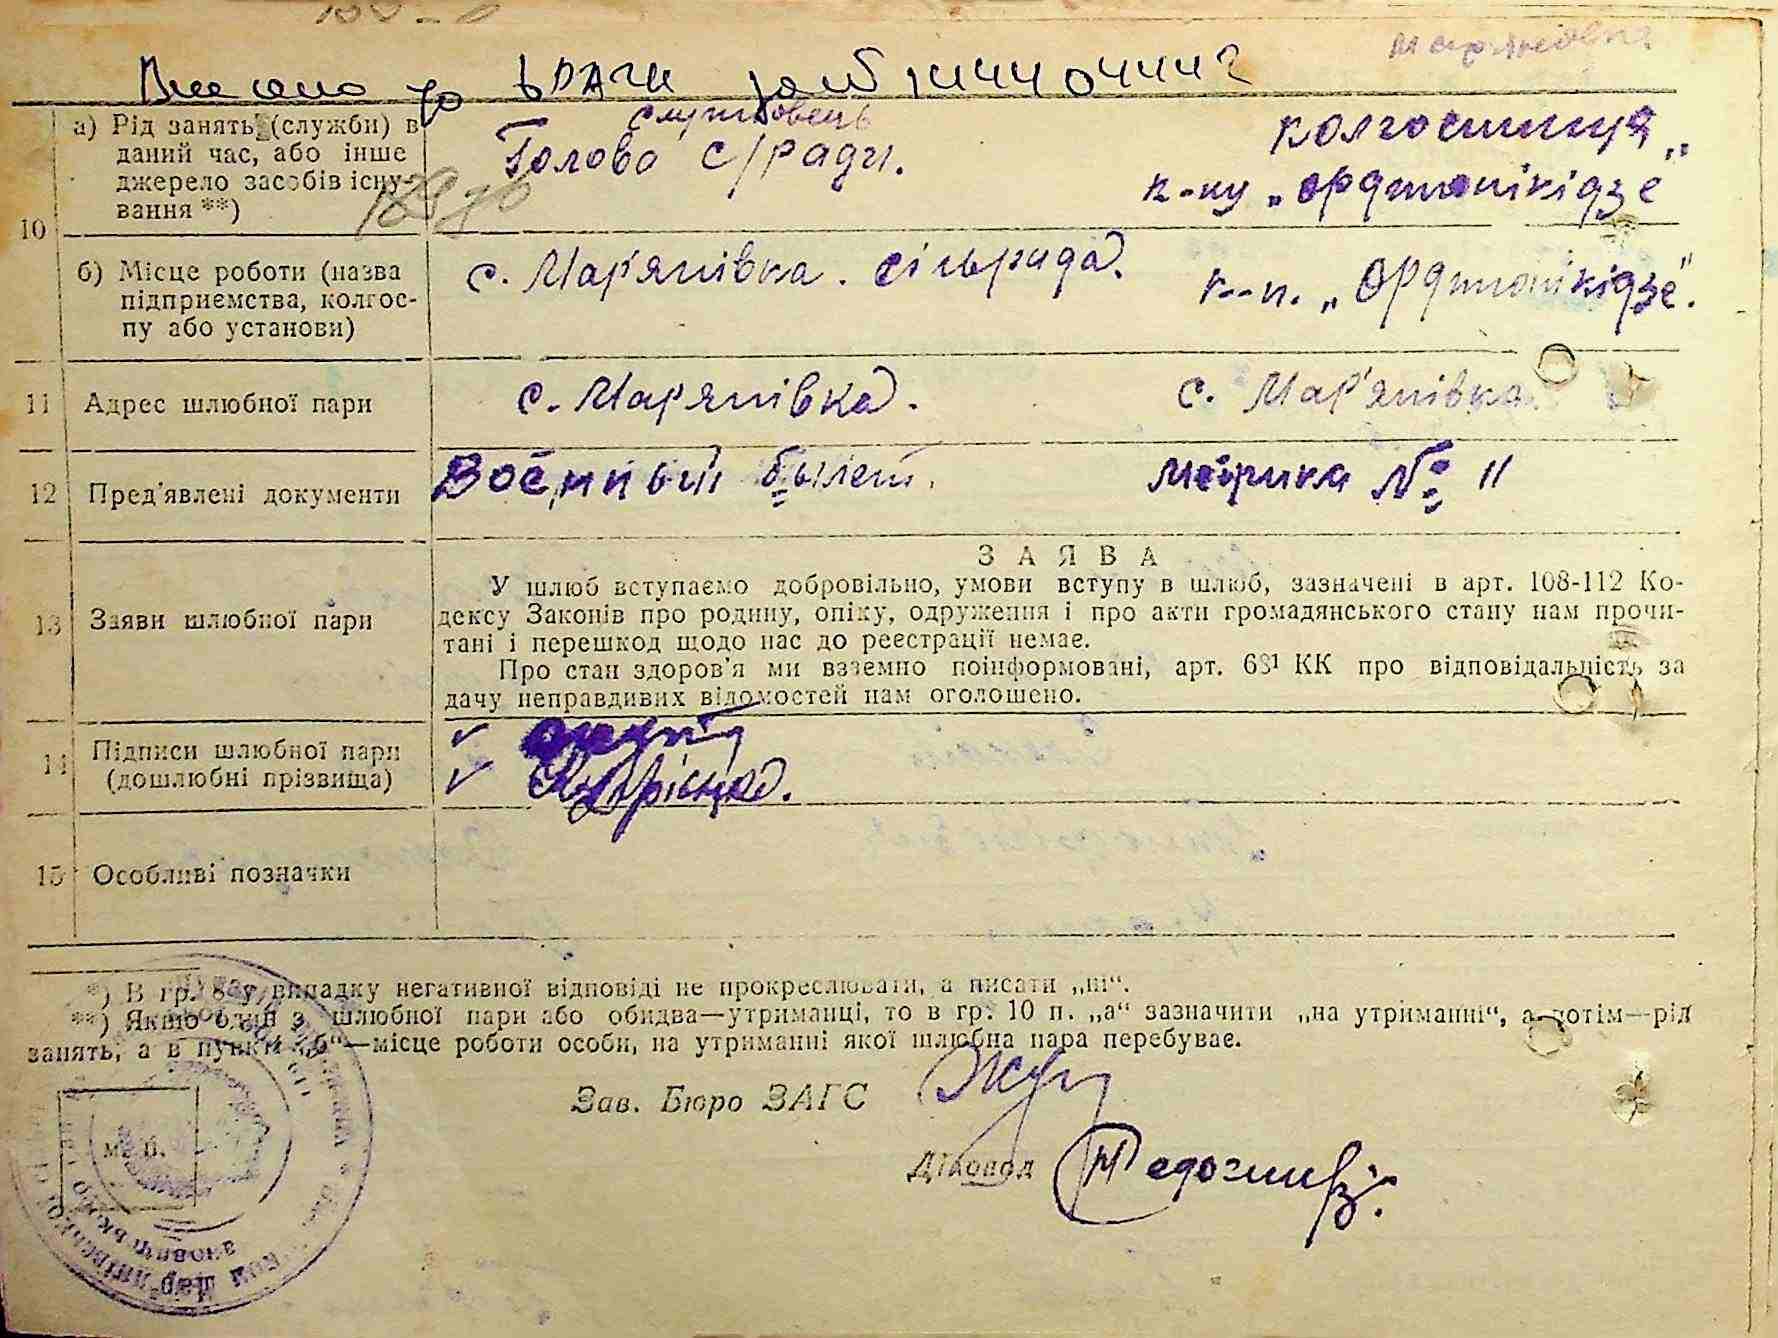 Марянівка
Внесено до
службовець
а) Рід занять (служби) в
даний час, або інше
джерело засобів існу-
вання **)
Голова с/ради.
колгоспниця
к-пу „Орджонікідзе"
10
б) Місце роботи (назва
підприємства, колгос-
пу або установи)
с. Мар'янівка. сільрада.
к-п. „Орджонікідзе".
11 Адрес шлюбної пари
с. Мар'янівка.
с. Мар'янівка.
12 Пред'явлені документи
Военный былет.
метрика № 11
13 Заяви шлюбної пари
ЗАЯВА
У шлюб вступаємо добровільно, умови вступу в шлюб, зазначені в арт. 108-112 Ко-
дексу Законів про родину, опіку, одруження і про акти громадянського стану нам прочи-
тані і перешкод щодо нас до реєстрації немає.
Про стан здоров'я ми взаємно поінформовані, арт. 68¹ КК про відповідальність за
дачу неправдивих відомостей нам оголошено.
14 Підписи шлюбної пари
(дошлюбні прізвища)
15 Особливі позначки
*) В гр. 8 у випадку негативної відповіді не прокреслювати, а писати „ні“.
**) Якщо один з шлюбної пари або обидва—утриманці, то в гр. 10 п. „а“ зазначити „на утриманні“, а потім—рід
занять, а в пункті „б“—місце роботи особи, на утриманні якої шлюбна пара перебуває.
Зав. Бюро ЗАГС
Діловод
м. п.